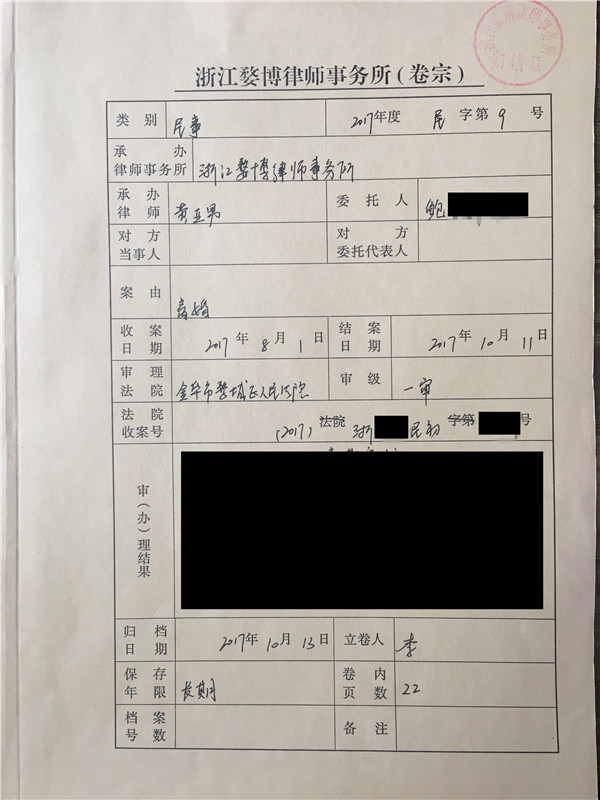 浙江婺博律师事务所(卷宗)
类别 民事 2017年度 民 字第 9 号
承办律师事务所 浙江婺博律师事务所
承办律师 黄亚男 委托人 鲍
对方当事人 对方委托代表人
案由 离婚
收案日期 2017年8月1日 结案日期 2017年10月11日
审理法院 金华市婺城区人民法院 审级 一审
法院收案号 (2017)法院 浙 民初 字第 号
审(办)理结果
归档日期 2017年10月13日 立卷人 李
保存年限 长期 卷内页数 22
档案号数 备注